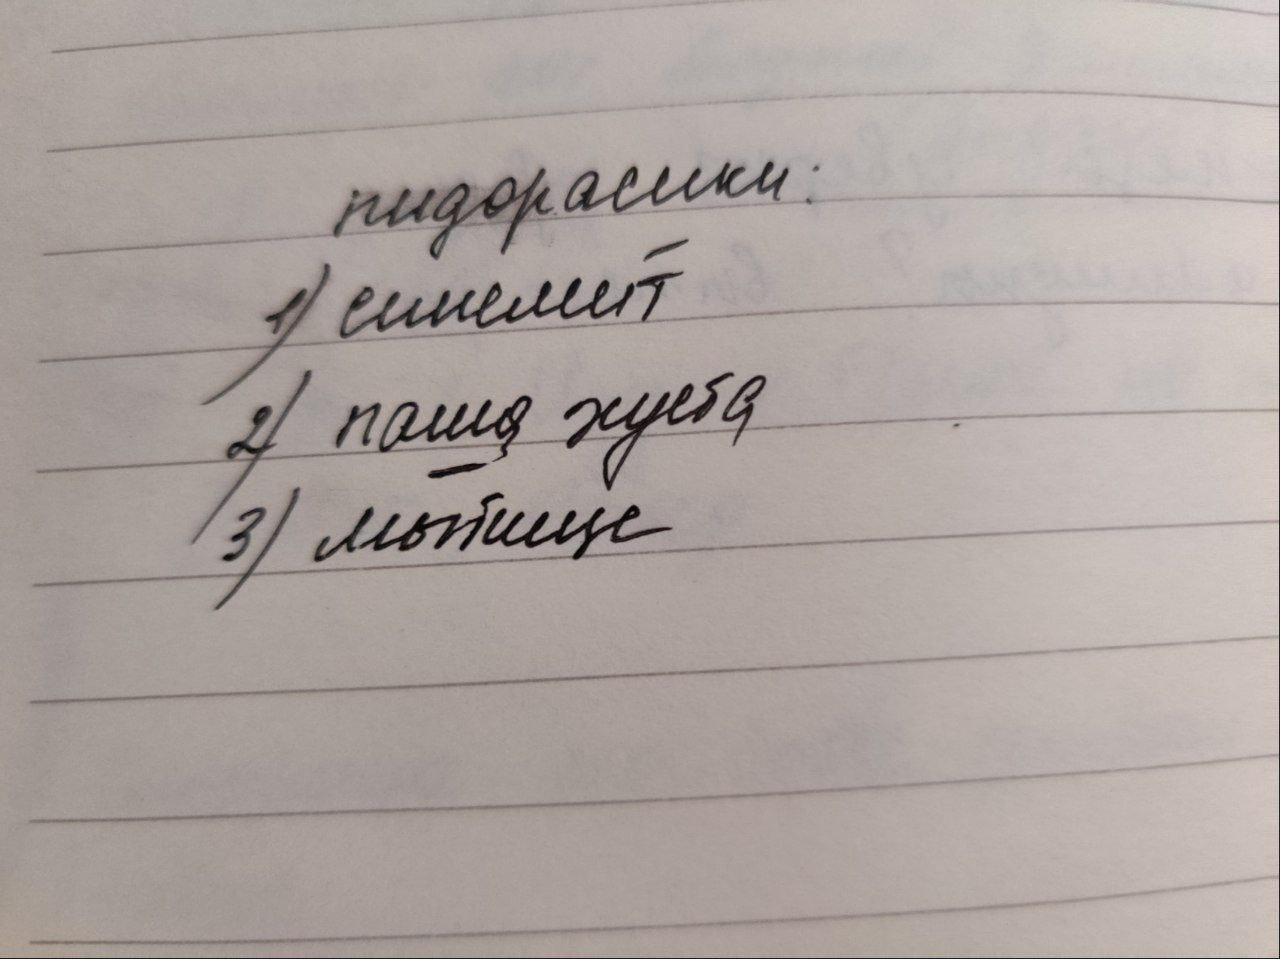 пидорасики:
1) синемит
2) паша жуста
3) мытище